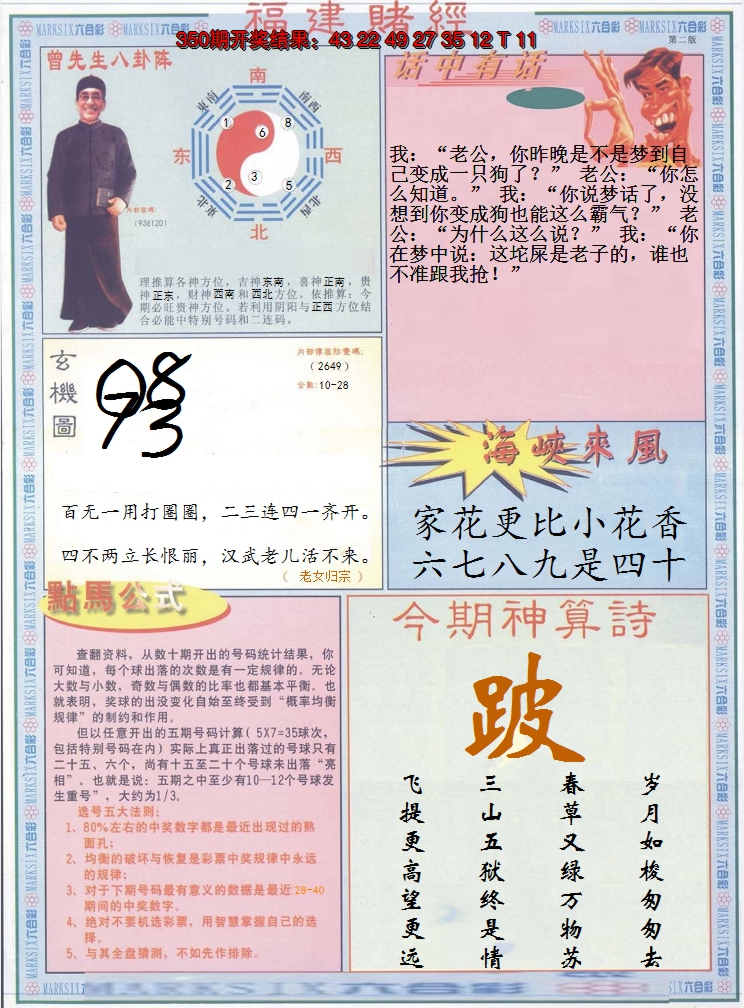 福建賭經
350期开奖结果：43 22 49 27 35 12 T 11
第二版
MARKSIX六合彩
曾先生八卦阵
南
东南
南西
1
8
6
东
西
3
2
5
东北
北西
北
内部密碼:
(936120)
理推算各神方位，吉神东南，喜神正南，贵
神正东，财神西南和西北方位。依推算：今
期必旺贵神方位。若利用阴阳与正西方位结
合必能中特别号码和二连码。
话中有话
我：“老公，你昨晚是不是梦到自
己变成一只狗了？” 老公：“你怎
么知道。” 我：“你说梦话了，没
想到你变成狗也能这么霸气？” 老
公：“为什么这么说？” 我：“你
在梦中说：这坨屎是老子的，谁也
不准跟我抢！”
玄機圖
(2649)
合数:10-28
百无一用打圈圈，二三连四一齐开。
四不两立长恨丽，汉武老儿活不来。
（ 老女归宗 ）
海峽來風
家花更比小花香
六七八九是四十
點馬公式
查翻资料，从数十期开出的号码统计结果，你
可知道，每个球出落的次数是有一定规律的。无论
大数与小数，奇数与偶数的比率也都基本平衡。也
就表明，奖球的出没变化自始至终受到“概率均衡
规律”的制约和作用。
但以任意开出的五期号码计算( 5X7=35球次，
包括特别号码在内) 实际上真正出落过的号球只有
二十五、六个，尚有十五至二十个号球未出落“亮
相”。也就是说：五期之中至少有10—12个号球发
生重号”，大约为1/3。
选号五大法则：
1、80%左右的中奖数字都是最近出现过的熟
面孔；
2、均衡的破坏与恢复是彩票中奖规律中永远
的规律；
3、对于下期号码最有意义的数据是最近28-40
期间的中奖数字。
4、绝对不要机选彩票，用智慧掌握自己的选
择。
5、与其全盘猜测，不如先作排除。
今期神算詩
跛
岁月如梭匆匆去
春草又绿万物苏
三山五狱终是情
飞提更高望更远